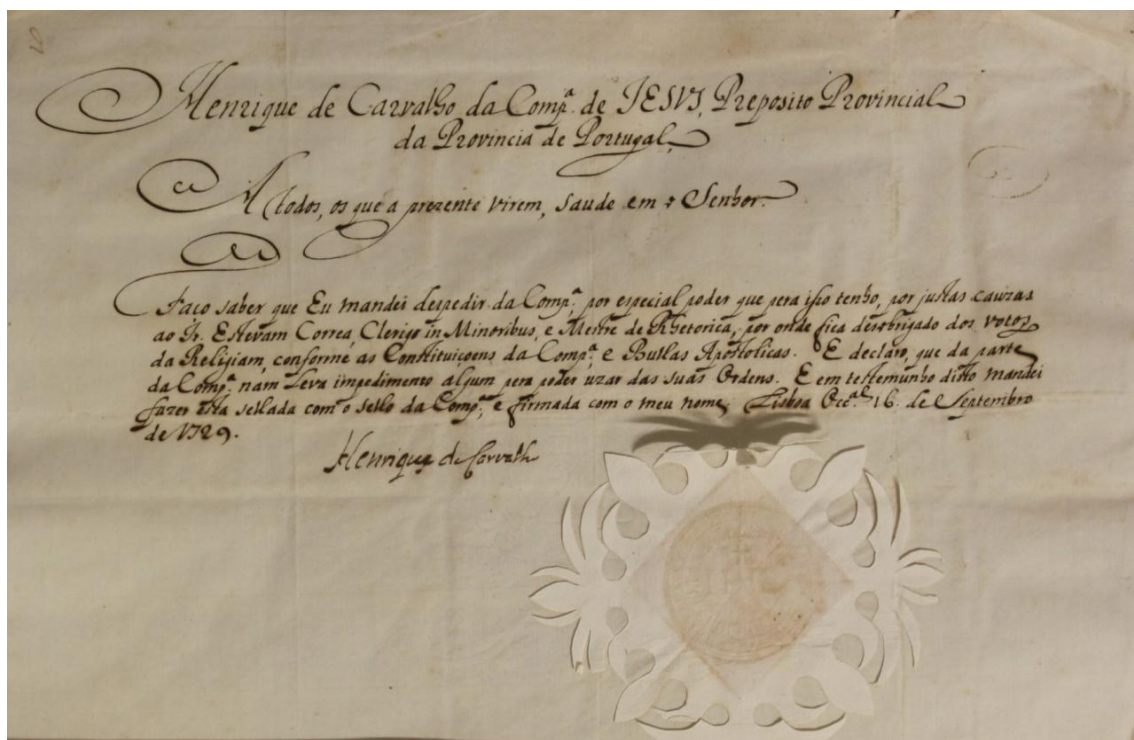 Henrique de Carvalho da Comp.ª de JESVS, Preposito Provincial
da Provincia de Portugal,
A todos, os que a prezente virem, saude em o Senhor.
Faço saber que Eu mandei despedir da Comp.ª por especial poder que pera isso tenho, por justas cauzas
ao Ir. Estevam Correa, Clerigo in Minoribus, e Mestre de Rhetorica, por onde fica desobrigado dos votos
da Religiam, conforme as Constituiçoens da Comp.ª e Bullas Apostolicas. E declaro, que da parte
da Comp.ª nam leva impedimento algum pera poder uzar das suas Ordens. E em testemunho disto mandei
fazer esta sellada com o sello da Comp.ª, e firmada com o meu nome, Lisboa Occ.al 16. de Septembro
de 1729.
Henrique de Carvalho